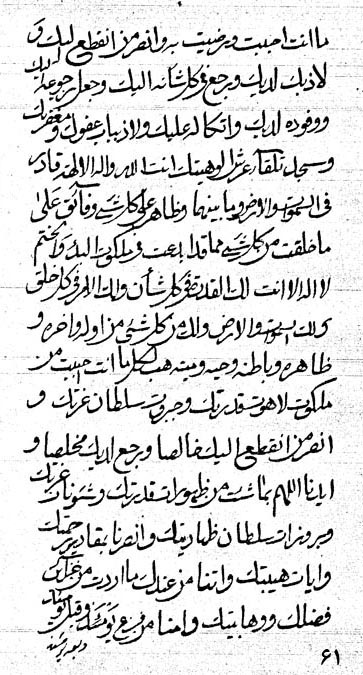 ما انت احببت و رضيت به وانصر من انقطع اليك و
لاذ بك لديك و رجع في كل شأنه اليك و جعل رجوعه اليك
و وفوده لديك واتكاله عليك ولاذ بباب عفوك و مغفرتك
و سجد تلقاء عرش الوهيتك انت الله لا اله الا انت قادر
في السموات والارض وما بينهما وظاهر على كل شيء وفائق على
ما خلقت من كل شيء مما قد ابدعت في ملكوت البدء والختم
لا اله الا انت لك القدرة في كل شأن ولك الامر في كل خلق
ولك السموات والارض ولك من كل شيء من اوله واخره و
ظاهره وباطنه وحيه وميته هب لكل ما انت احببت من
ملكوت لاهوت قدرتك وجبروت سلطان عزتك و
انصر من انقطع اليك خالصا و رجع لديك مخلصا و
ايدنا اللهم بما شئت من ظهورات قدرتك وشئونات عزتك
وبروزات سلطان قهاريتك وانصرنا بقادرية رحمتك
وايات هيبتك واتنا من عندك ما اردت من
فضلك ووهابيتك وامنا من فزع يومئذ وقبل
٦١